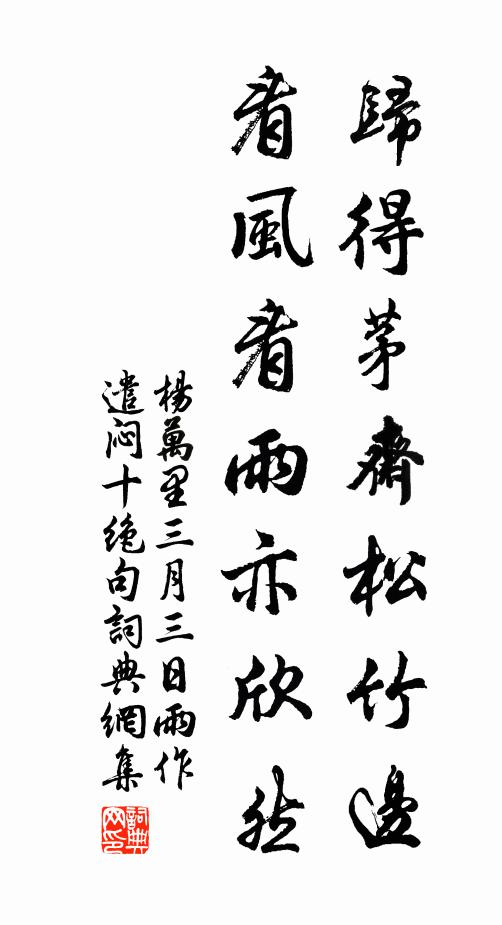 歸得茅齋松竹邊
看風看雨亦欣然
楊萬里三月三日雨作
遣悶十絕句詞典網集
詞典
网印